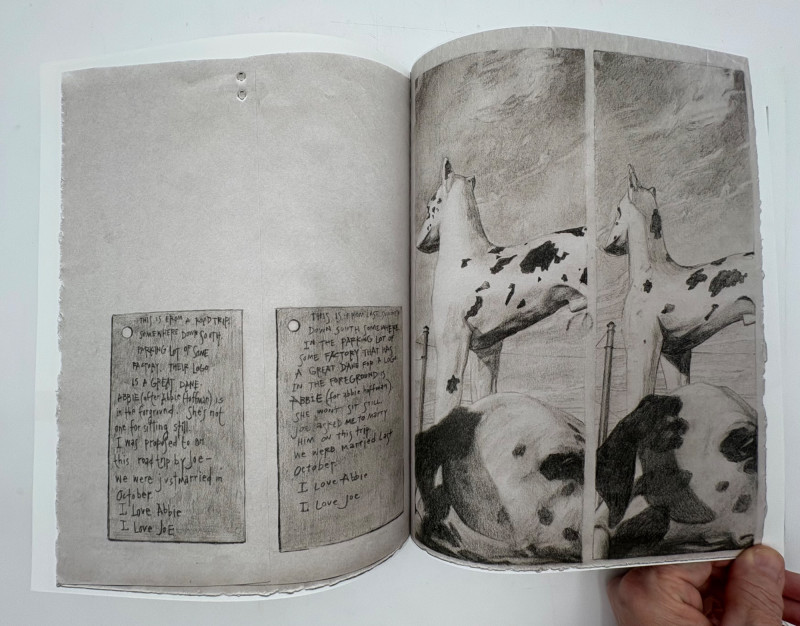 THIS IS FROM A ROAD TRIP
SOMEWHERE DOWN SOUTH.
PARKING LOT OF SOME
FACTORY. THEIR LOGO
IS A GREAT DANE.
ABBIE (after Abbie Hoffman) is
in the forground. She's not
one for sitting still.
I was proposed to on
this road trip by Joe—
we were just married in
October.
I Love Abbie
I Love JOE
THIS IS FROM LAST
DOWN SOUTH SOMEWHERE
IN THE PARKING LOT OF
SOME FACTORY THAT HAS
A GREAT DANE FOR A LOGO
IN THE FOREGROUND IS
ABBIE (for abbie hoffman)
SHE WON'T SIT STILL.
Joe ASKED ME TO MARRY
HIM ON THIS TRIP
WE WERE MARRIED LAST
October.
I Love Abbie
I Love Joe